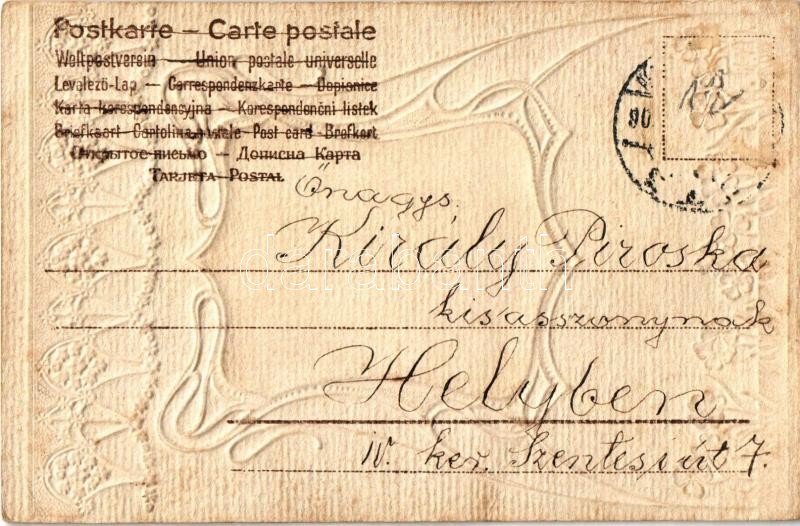 Postkarte – Carte postale
Weltpostverein – Union postale universelle
Levelező-Lap – Correspondenzkarte – Dopisnice
Karta korespondencyjna – Korespondenční listek
Briefkaart Cartolina postale Post card Brefkort
Открытое письмо – Дописна Карта
Tarjeta Postal
Önagys.
Király Piroska
kisasszonynak
Helyben
IV. ker. Szentesi út 7.